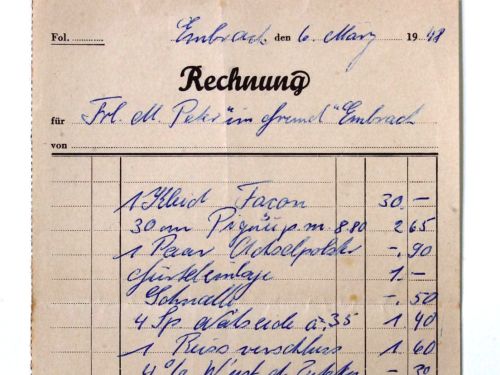 Fol. Embrach, den 6. März 1948
Rechnung
für Frl. M. Peter "im Grund" Embrach
von
1 Kleid Facon 30.–
30 cm Piqué p. m. 8.80 2 65
1 Paar Achselpolster –.90
Gürteleinlage 1.–
Schnalle –.50
4 Sp. Nähseide à -.35 1.40
1 Reissverschluss 1.60
4